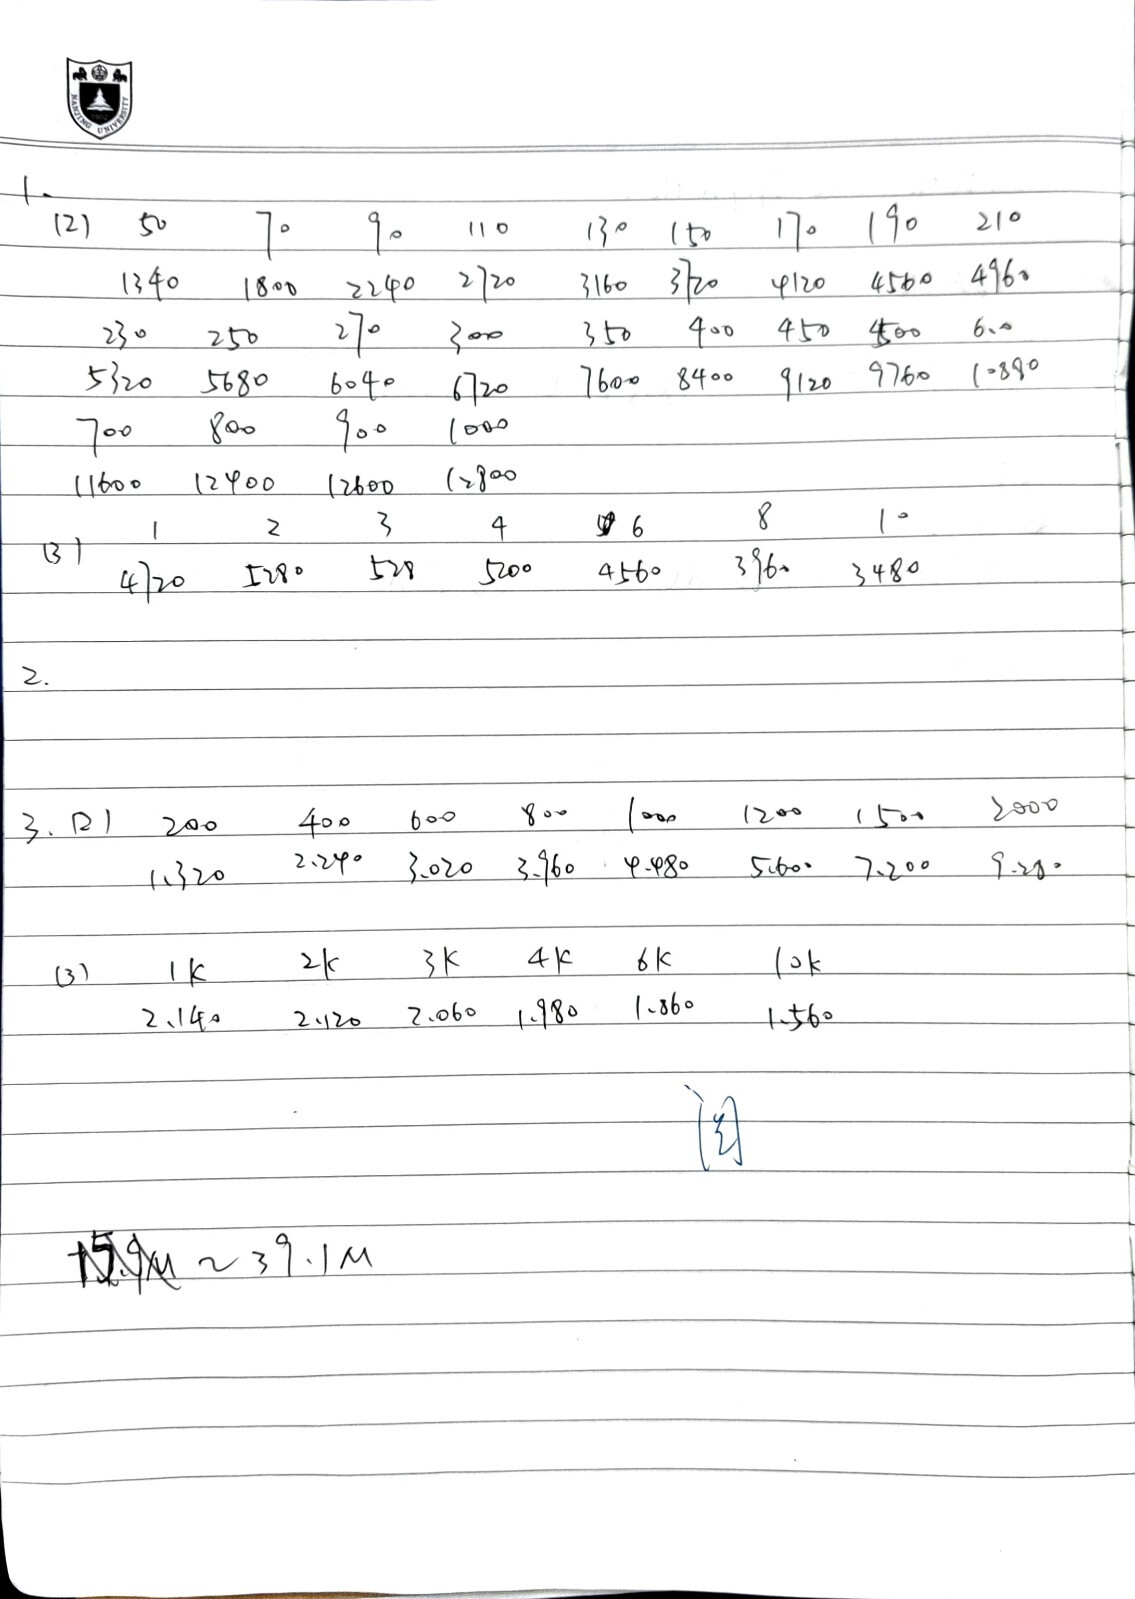 NANJING UNIVERSITY
1.
(2) 50 70 90 110 130 150 170 190 210
1340 1800 2240 2720 3160 3720 4120 4560 4960
230 250 270 300 350 400 450 500 600
5320 5680 6040 6720 7600 8400 9120 9760 10880
700 800 900 1000
11600 12400 12600 12800
(3) 1 2 3 4 6 8 10
4720 5280 528 5200 4560 3960 3480
2.
3. (2) 200 400 600 800 1000 1200 1500 2000
1.320 2.240 3.020 3.960 4.480 5.600 7.200 9.280
(3) 1K 2K 3K 4K 6K 10K
2.140 2.120 2.060 1.980 1.860 1.560
~39.1M